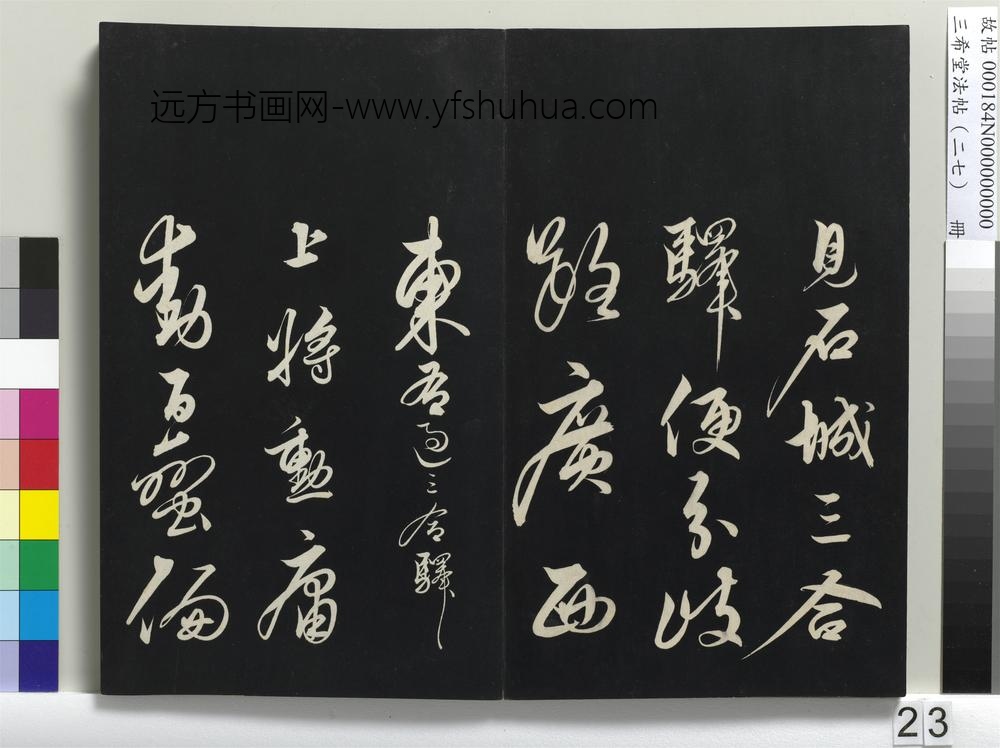 远方书画网-www.yfshuhua.com
見石城三合
驛便分岐
路廣西
東右過三合驛
上將勳庸
動百蠻偏
故帖 000184N000000000
三希堂法帖(二七) 冊
23